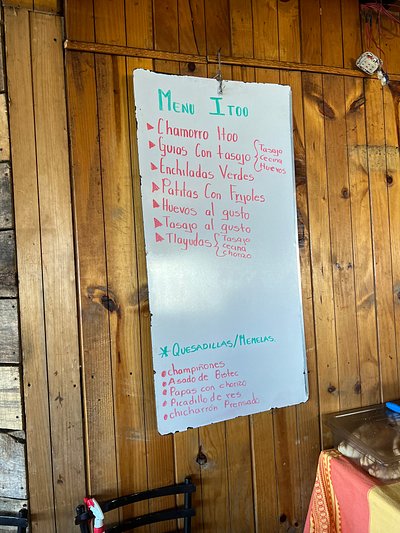 Menu I TOO
Chamorro Hoo
Guias Con tasajo { Tasajo
cecina
Huevos
Enchiladas Verdes
Patitas Con Frijoles
Huevos al gusto
Tasajo al gusto
Tlayudas { Tasajo
cecina
chorizo
* QUESADILLAS/MEMELAS.
champiñones
Asado de Bistec
Papas con chorizo
Picadillo de res
chicharrón Prensado